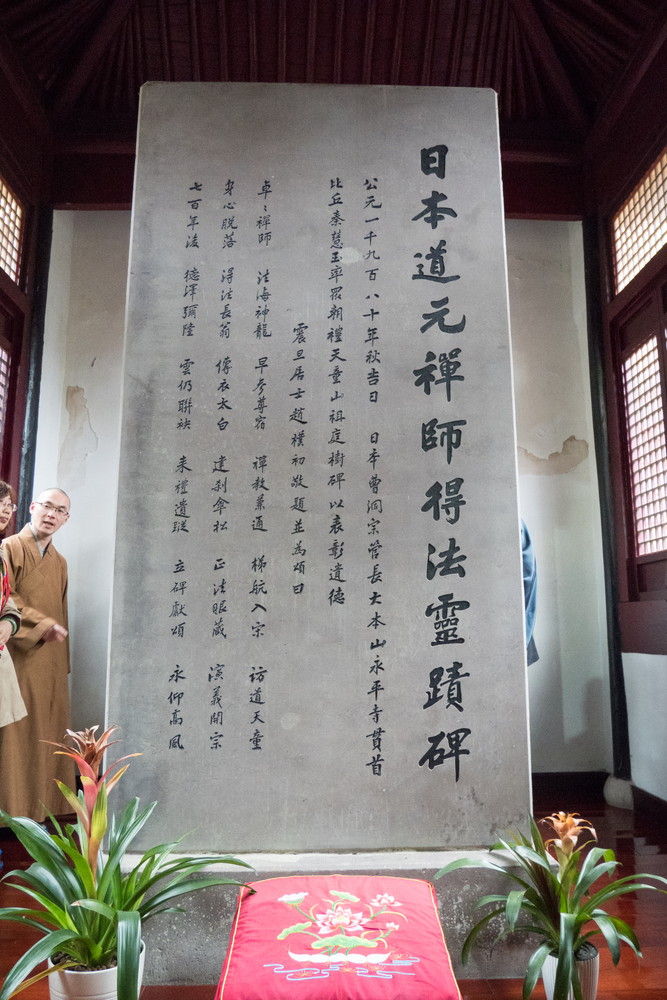 日本道元禪師得法靈蹟碑
公元一千九百八十年秋吉日　日本曹洞宗管長大本山永平寺貫首
比丘秦慧玉率眾朝禮天童山祖庭樹碑以表彰遺德
震旦居士趙樸初敬題並為頌曰
卓〻禪師　法海神龍　早參尊宿　禪教兼通　梯航入宗　訪道天童
身心脫落　得法長翁　傳衣太白　建刹傘松　正法眼藏　演義開宗
七百年後　德澤彌隆　雲仍聯袂　来禮遺蹤　立碑獻頌　永仰高風